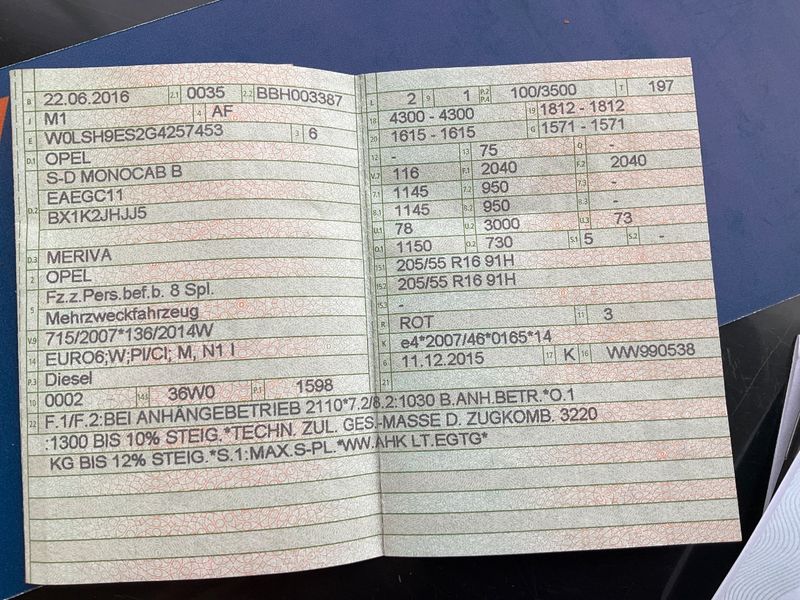 B 22.06.2016 2.1 0035 2.2 BBH003387
J M1 4 AF
E W0LSH9ES2G4257453 3 6
D.1 OPEL
S-D MONOCAB B
EAEGC11
D.2 BX1K2JHJJ5
D.3 MERIVA
2 OPEL
Fz.z.Pers.bef.b. 8 Spl.
5 Mehrzweckfahrzeug
V.9 715/2007*136/2014W
14 EURO6;W;PI/CI; M, N1 I
P.3 Diesel
10 0002 14.1 36W0 P.1 1598
22 F.1/F.2:BEI ANHÄNGEBETRIEB 2110*7.2/8.2:1030 B.ANH.BETR.*O.1
:1300 BIS 10% STEIG.*TECHN. ZUL. GES.-MASSE D. ZUGKOMB. 3220
KG BIS 12% STEIG.*S.1:MAX.S-PL.*WW.AHK LT.EGTG*
L 2 9 1 P.2 P.4 100/3500 T 197
18 4300 - 4300 19 1812 - 1812
20 1615 - 1615 G 1571 - 1571
12 - 13 75 Q -
V.7 116 F.1 2040 F.2 2040
7.1 1145 7.2 950 7.3 -
8.1 1145 8.2 950 8.3 -
U.1 78 U.2 3000 U.3 73
O.1 1150 O.2 730 S.1 5 S.2 -
15.1 205/55 R16 91H
15.2 205/55 R16 91H
15.3 -
R ROT 11 3
K e4*2007/46*0165*14
6 11.12.2015 17 K 16 WW990538
21